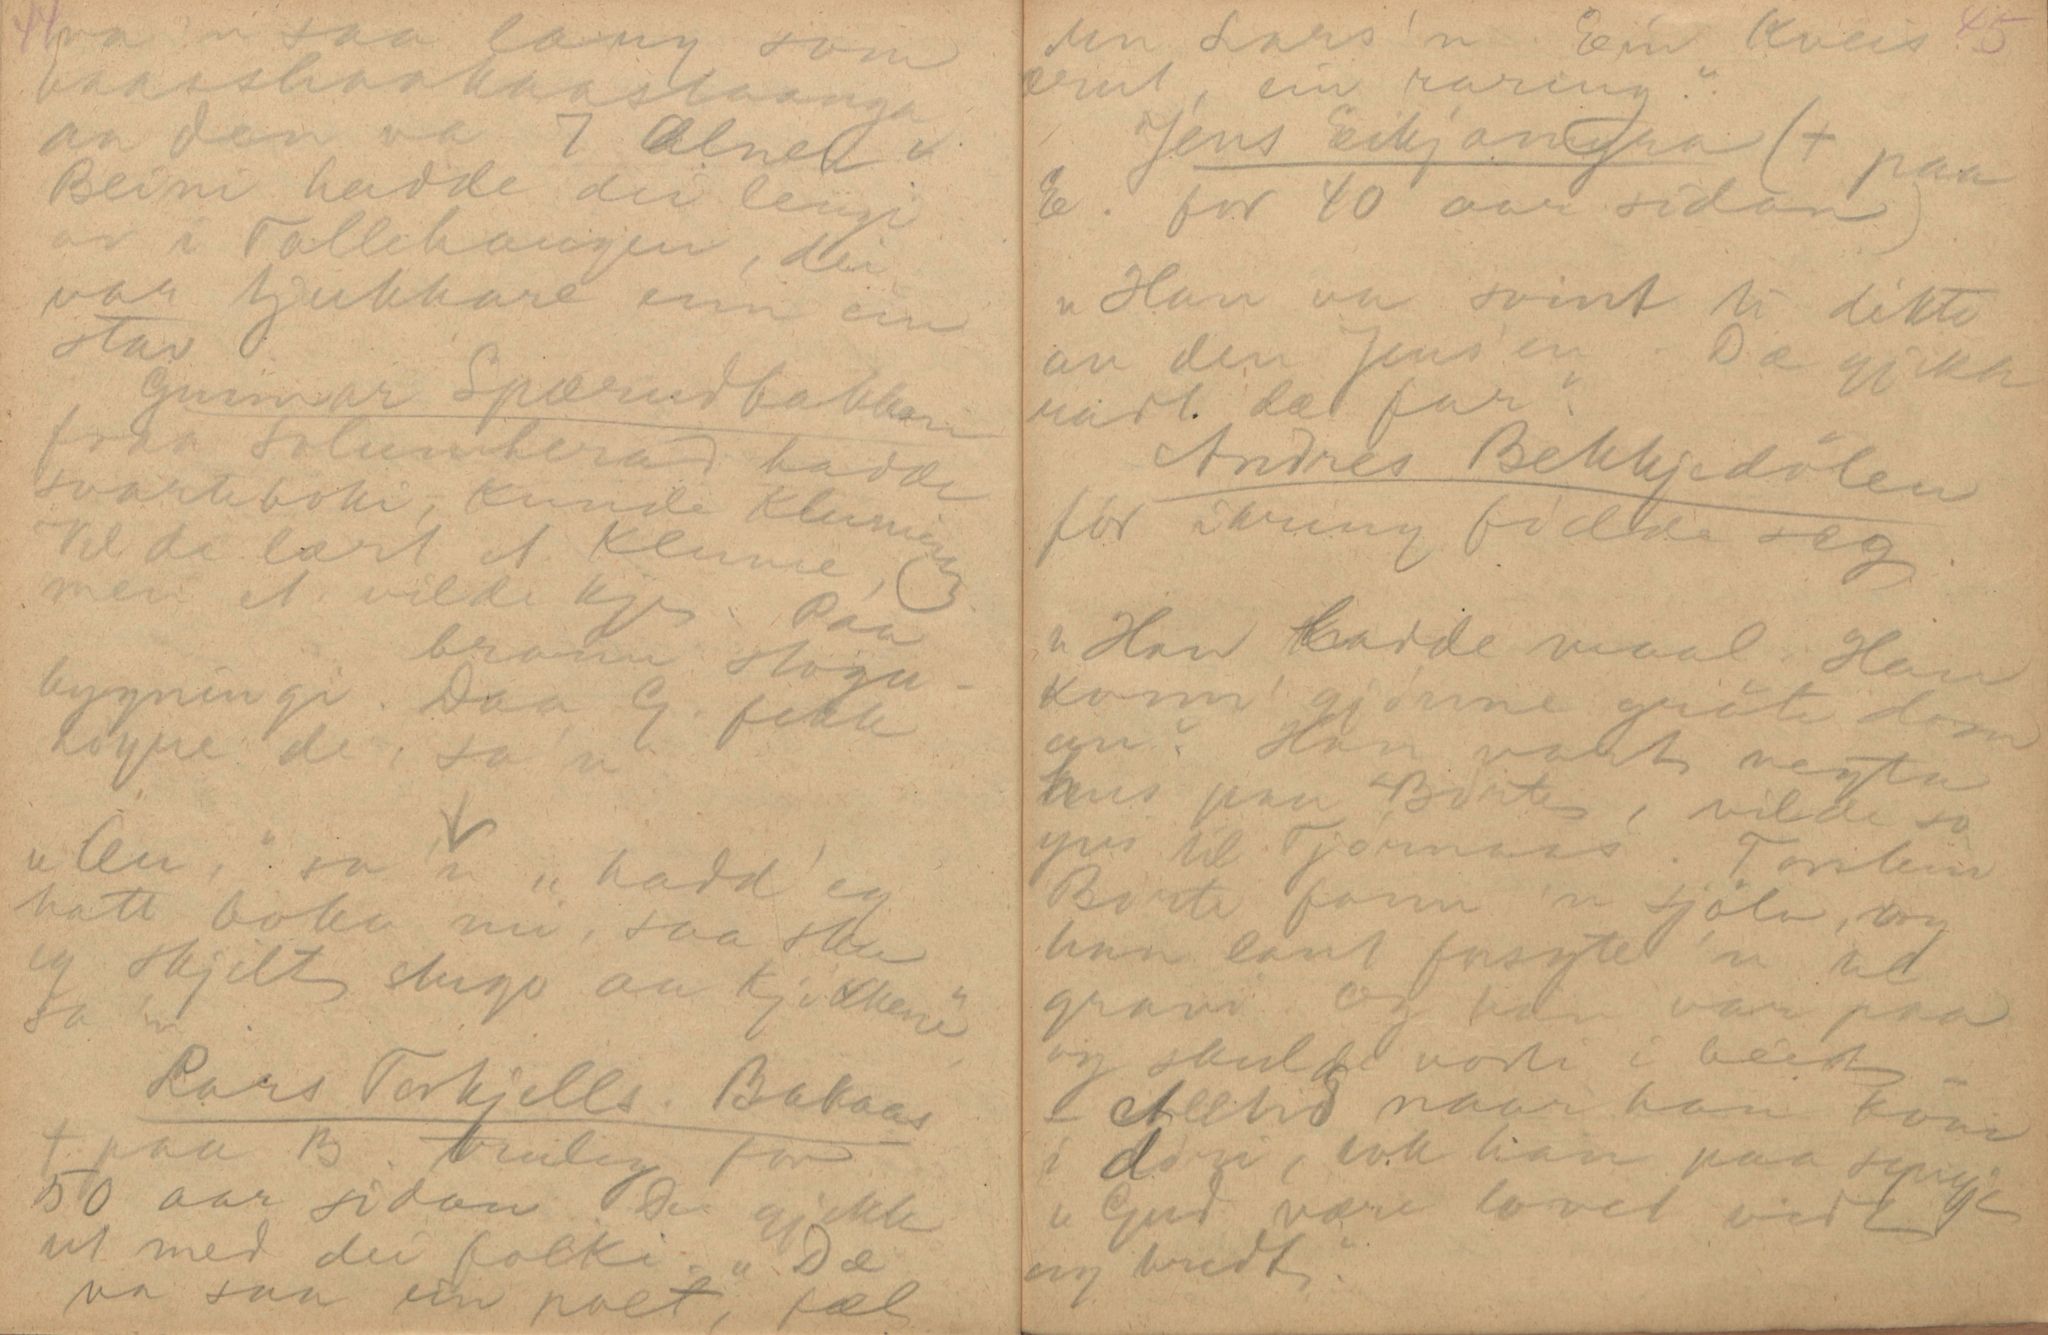 44
va 'n saa lang som
baashakaastaanga
aa den va 7 alner"
Beini hadde dei lengi
ov i Tallehaugen, dei
var tjukkare enn ein
stav
Gunnar Spærudbakken
fraa Solumherad hadde
svarteboki, kunde klunin
Vilde lært et klunie,
men et vilde kje. Paa
brann stogu-
bygningi. Daa G. fekk
høyre de, sa 'n
"En," sa 'n "hadd' eg
hatt boka mi, saa sku
eg skjilt stugo aa kjøkkene"
sa 'n
Lars Torkjells. Bakaas
† paa B. truleg for
50 aar sidan De gjekk
ut med dei folki. "Dæ
va saa ein poet, fæl
45
den Lars'n. Ein kveis
ein raring".
Jens Eikjamyra († paa
E. for 40 aar sidan)
"Han va svint ti dikte
an den Jens'en. Dæ gjekk
radt dæ for".
Andres Bekkjedölen
for ikring födde seg
"Han hadde maal. Han
konn' gjönne gröte dom
an". Han vart negta
hus paa Börte, vilde so
yvi til Tjönnaas. Torstein
Börte fann 'n sjölv, og
han lant fysyte 'n ad
gravi. Og han var paa
og skulde vori i beid
- Alltid naar han kom
i döri, tok han paa syngje
"Gud være lovet vidt
og bredt".